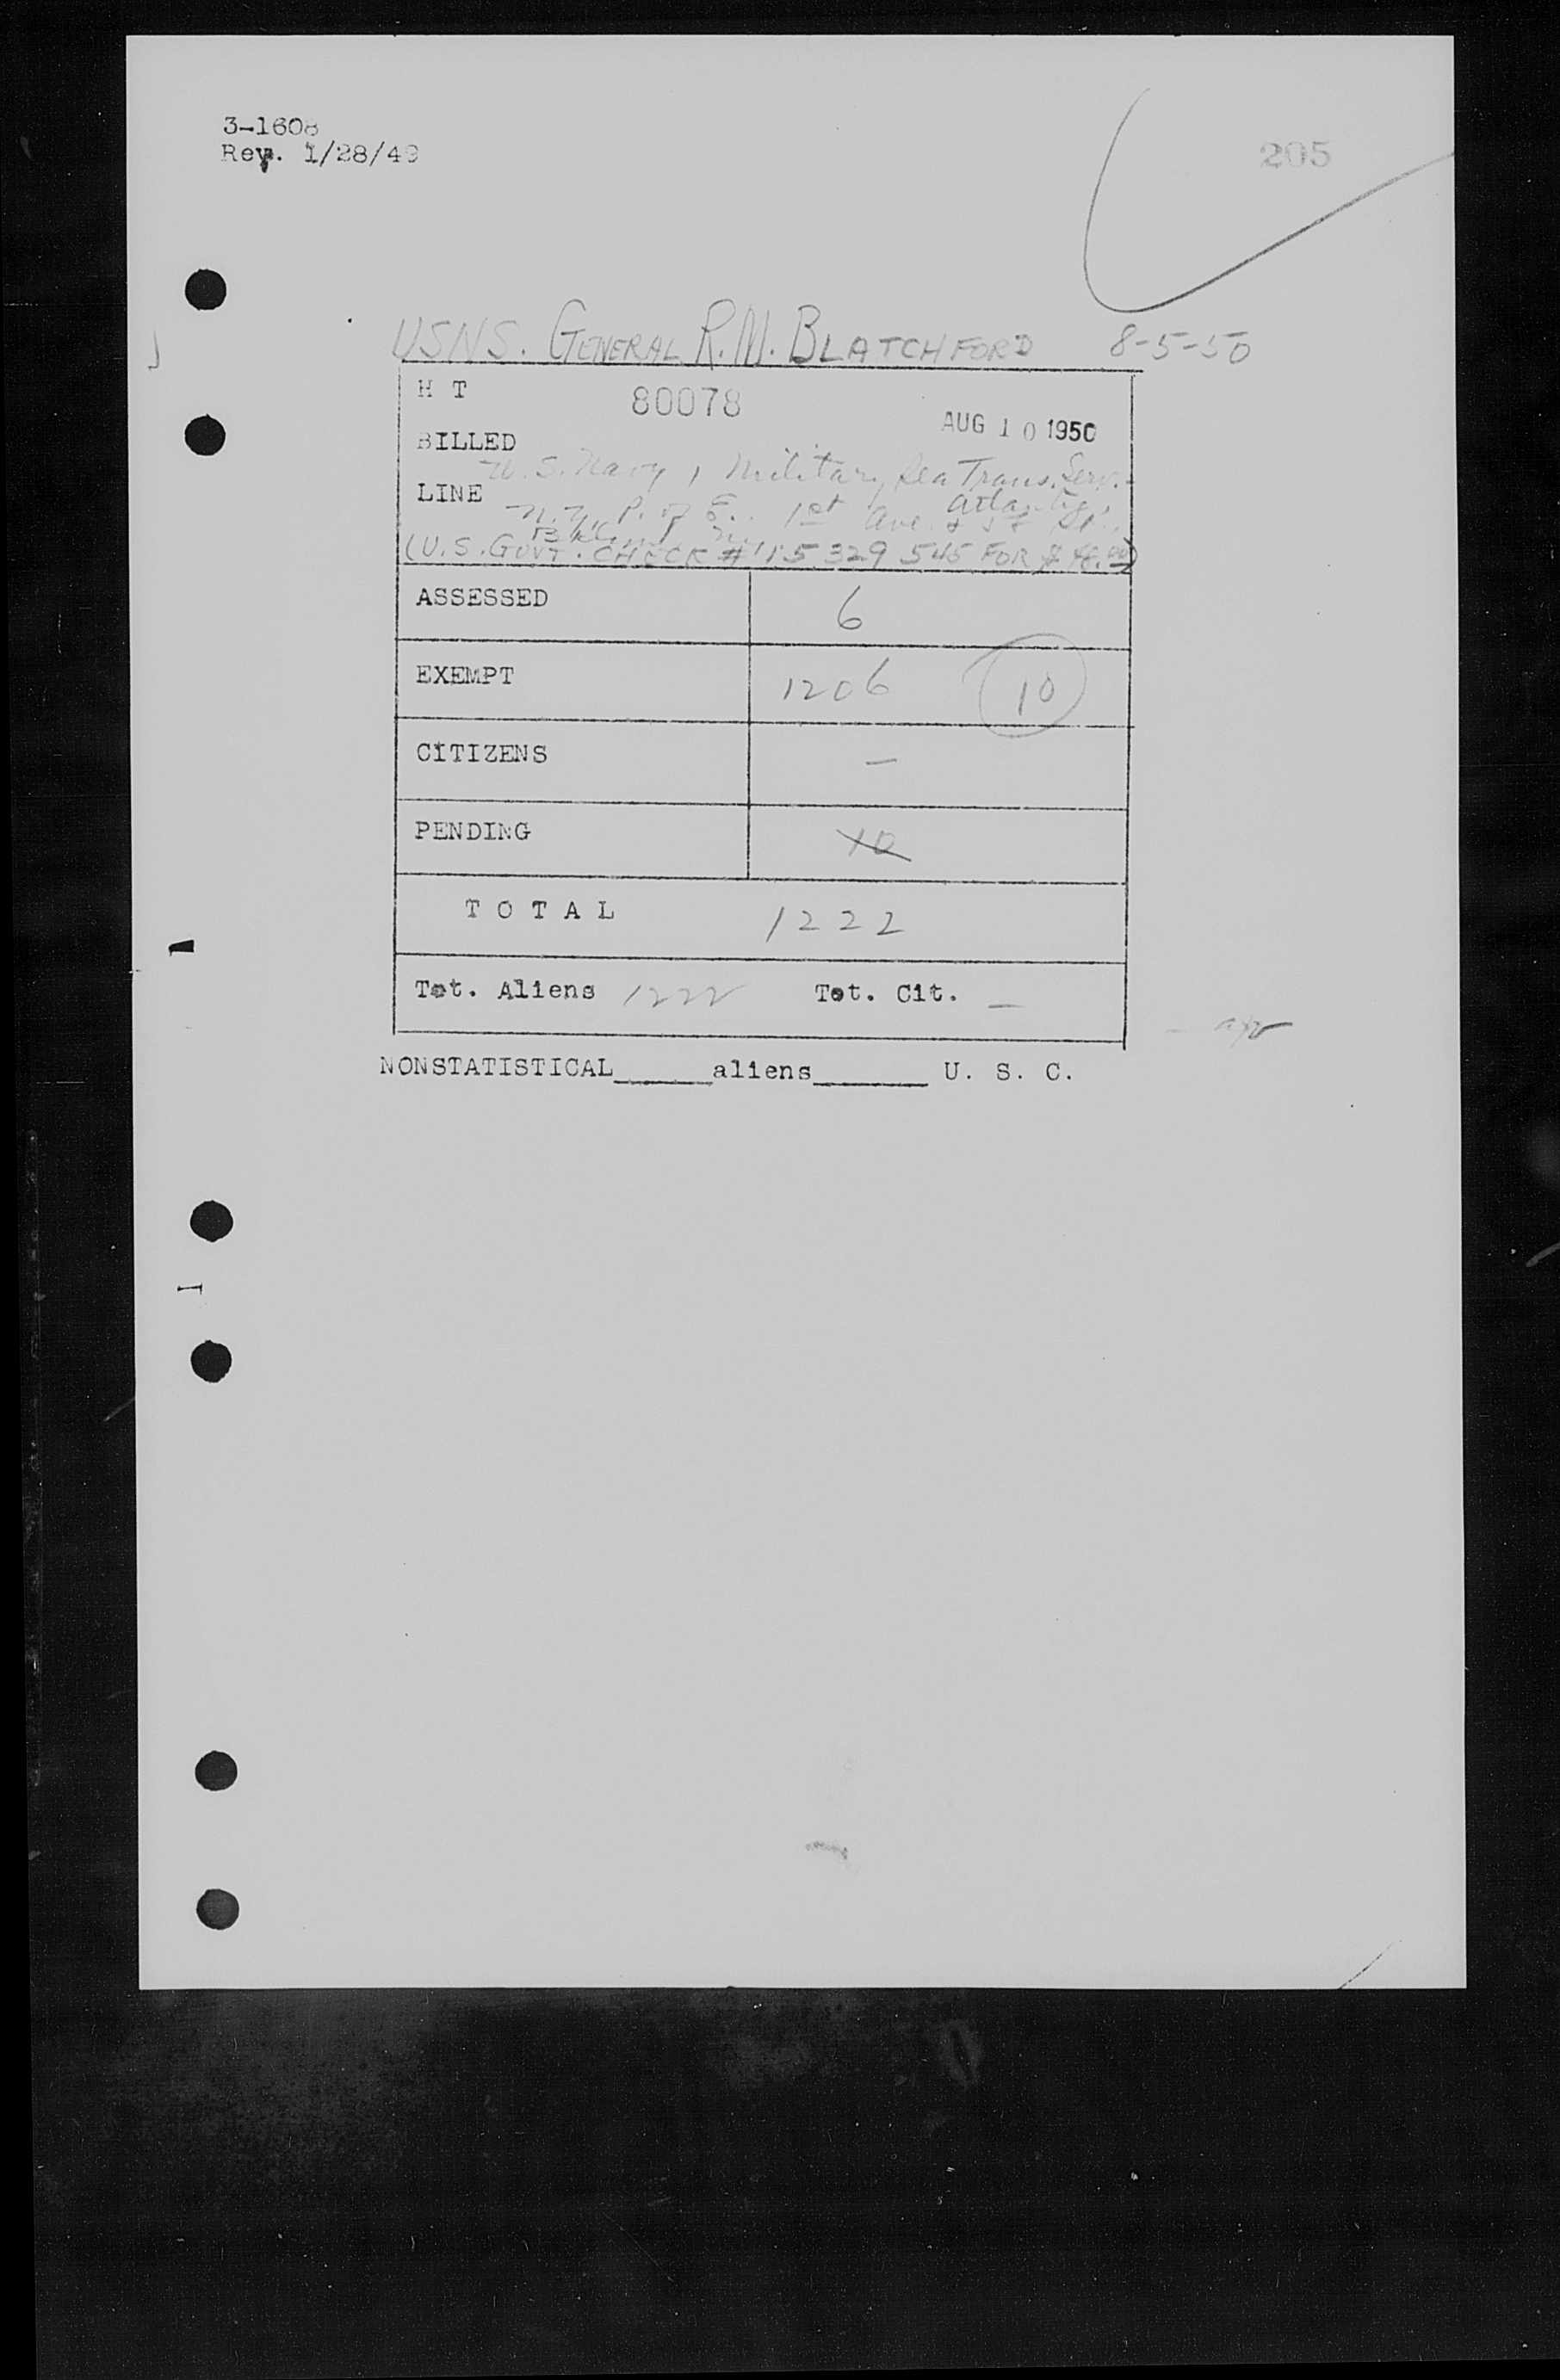 3-1608
Rev. 1/28/49
205
USNS. GENERAL R.M. BLATCHFORD 8-5-50
H T 80078
AUG 10 1950
BILLED
U.S. Navy, Military Sea Trans. Serv.-
LINE Atlantic,
N.Y. P. of E. 1st Ave. & St.,
Bklyn, N.Y.
(U.S. GOVT. CHECK # 15 329 545 FOR $ 48.00)
ASSESSED 6
EXEMPT 1206 10
CITIZENS —
PENDING 10
TOTAL 1222
Tot. Aliens 1222 Tot. Cit. —
NONSTATISTICAL_____aliens______ U. S. C.